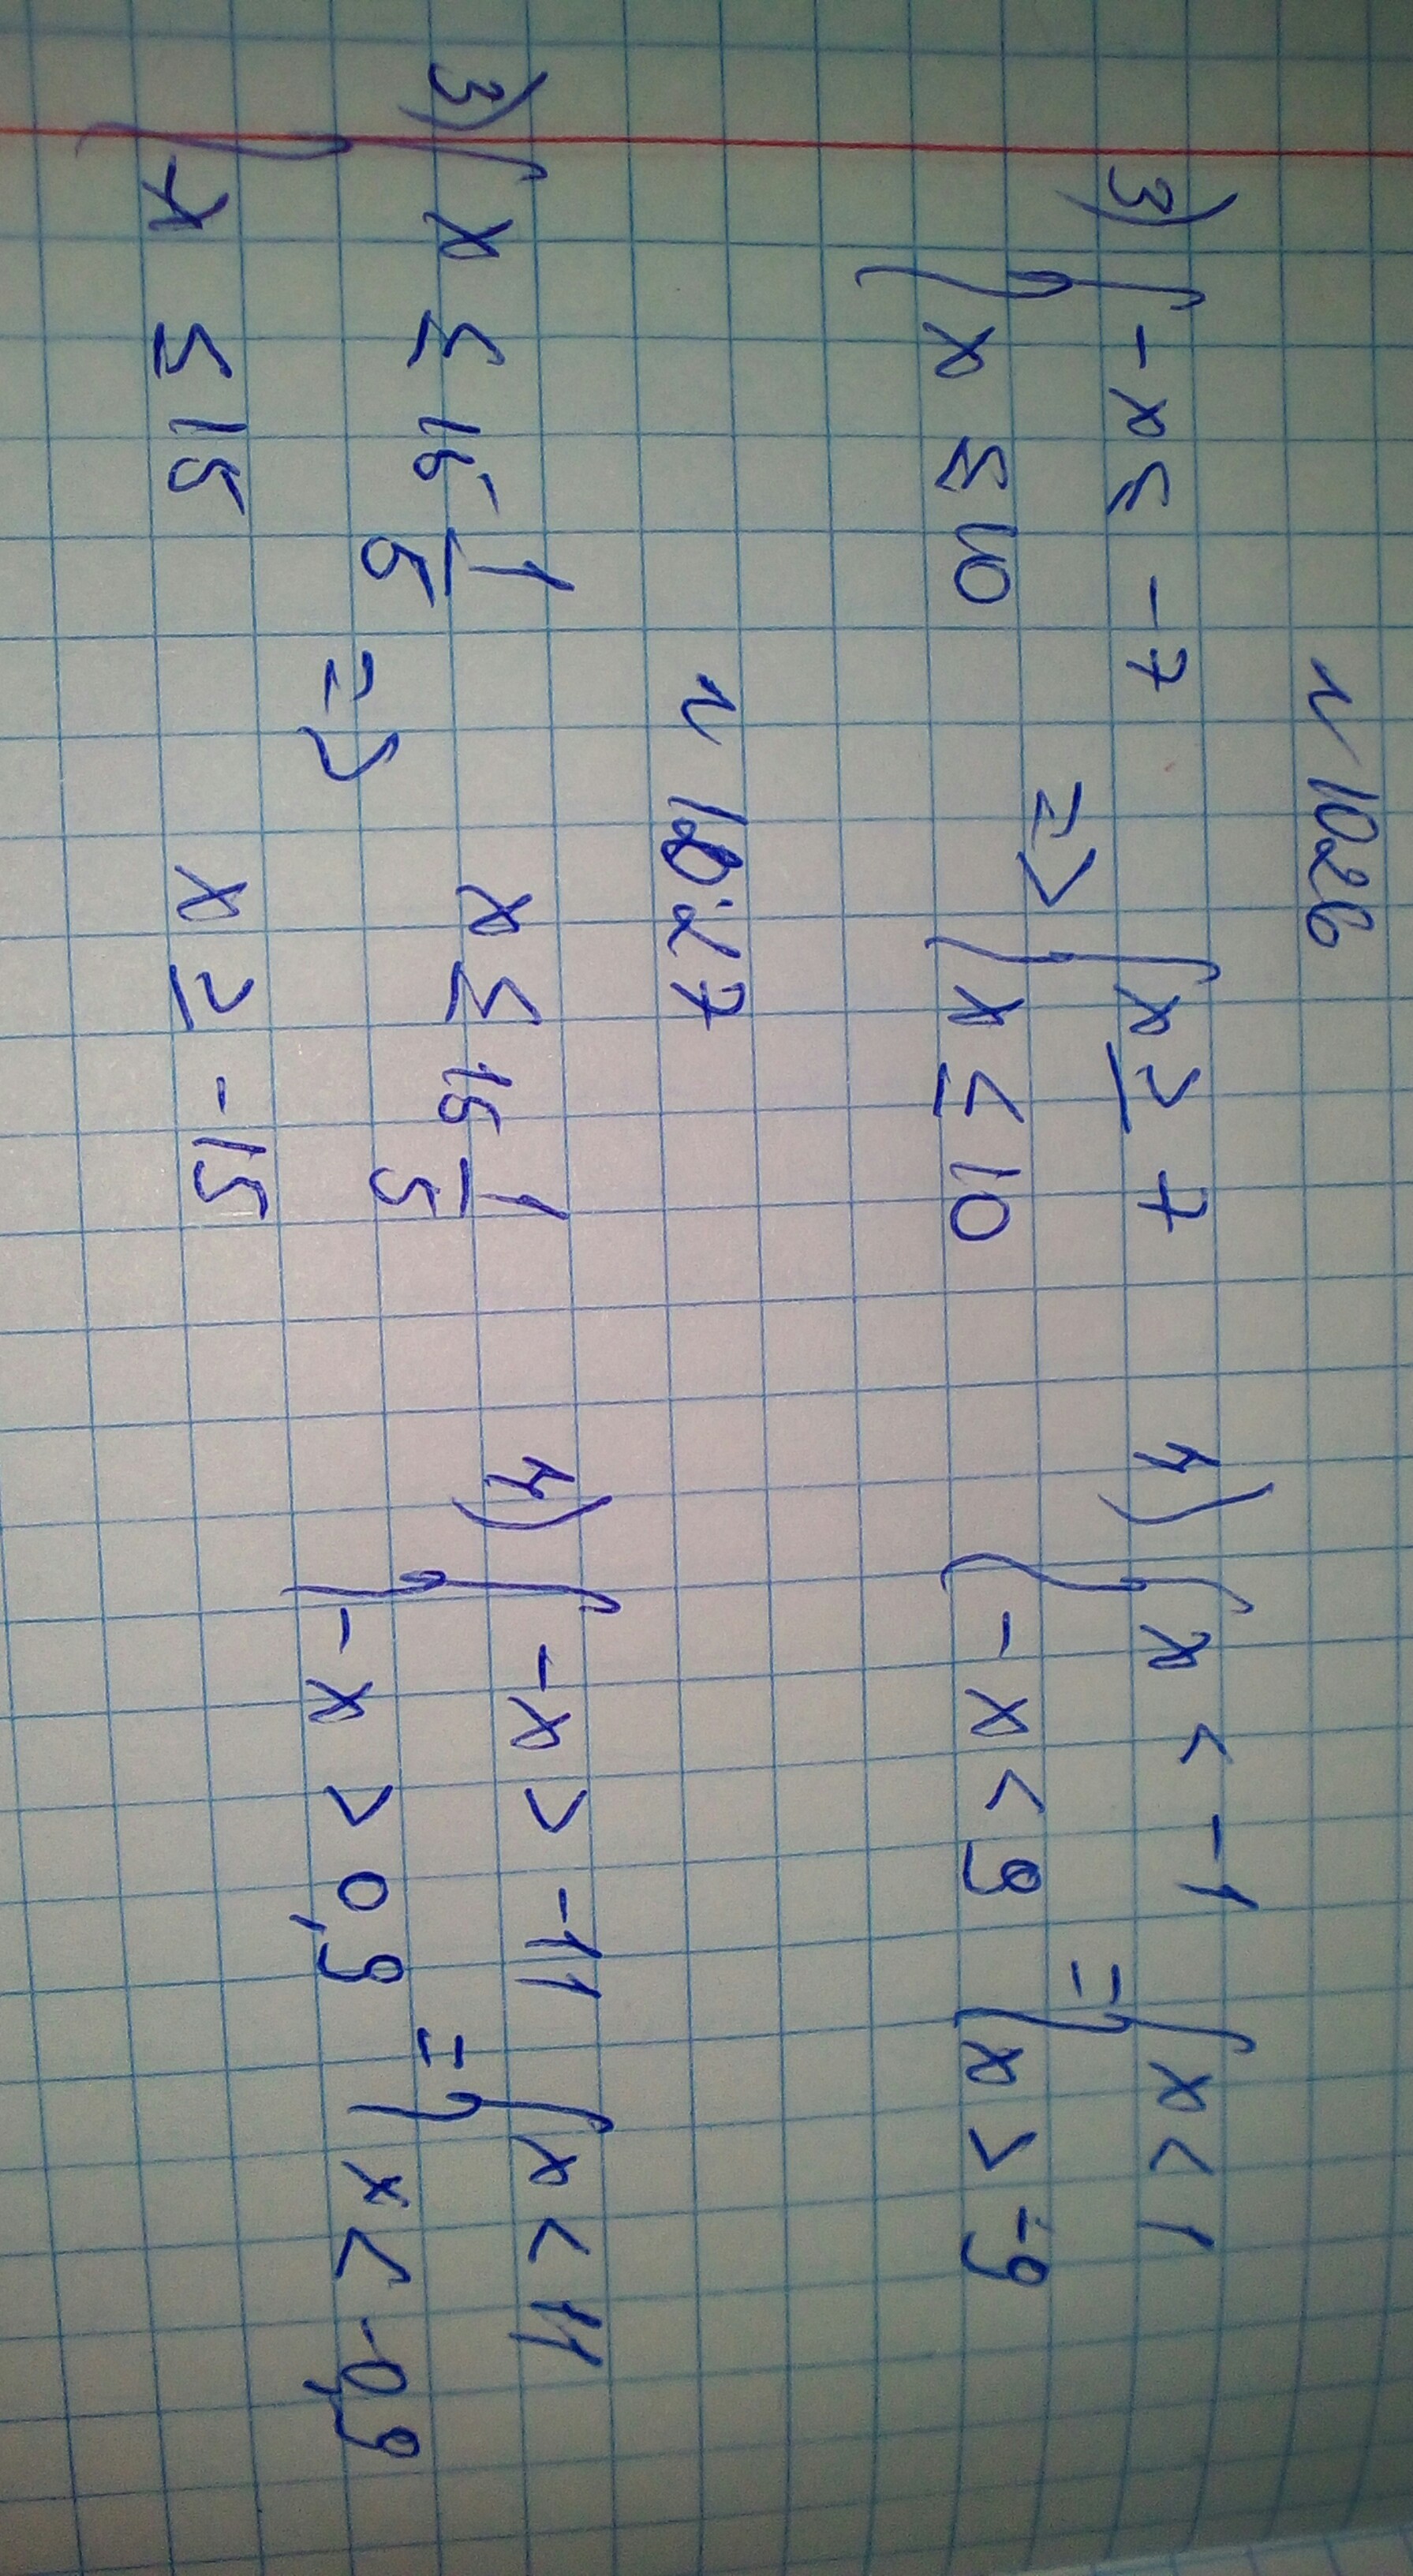 № 1026
3) { -x ≤ -7 => { x ≥ 7
{ x ≤ 10 { x ≤ 10
4) { x < -1 = { x < 1
{ -x < 9 { x > -9
№ 1027
3) { x ≤ 15 1/5 => x ≤ 15 1/5
{ x ≤ 15 x ≥ -15
4) { -x > -11 = { x < 11
{ -x > 0,9 { x < -0,9